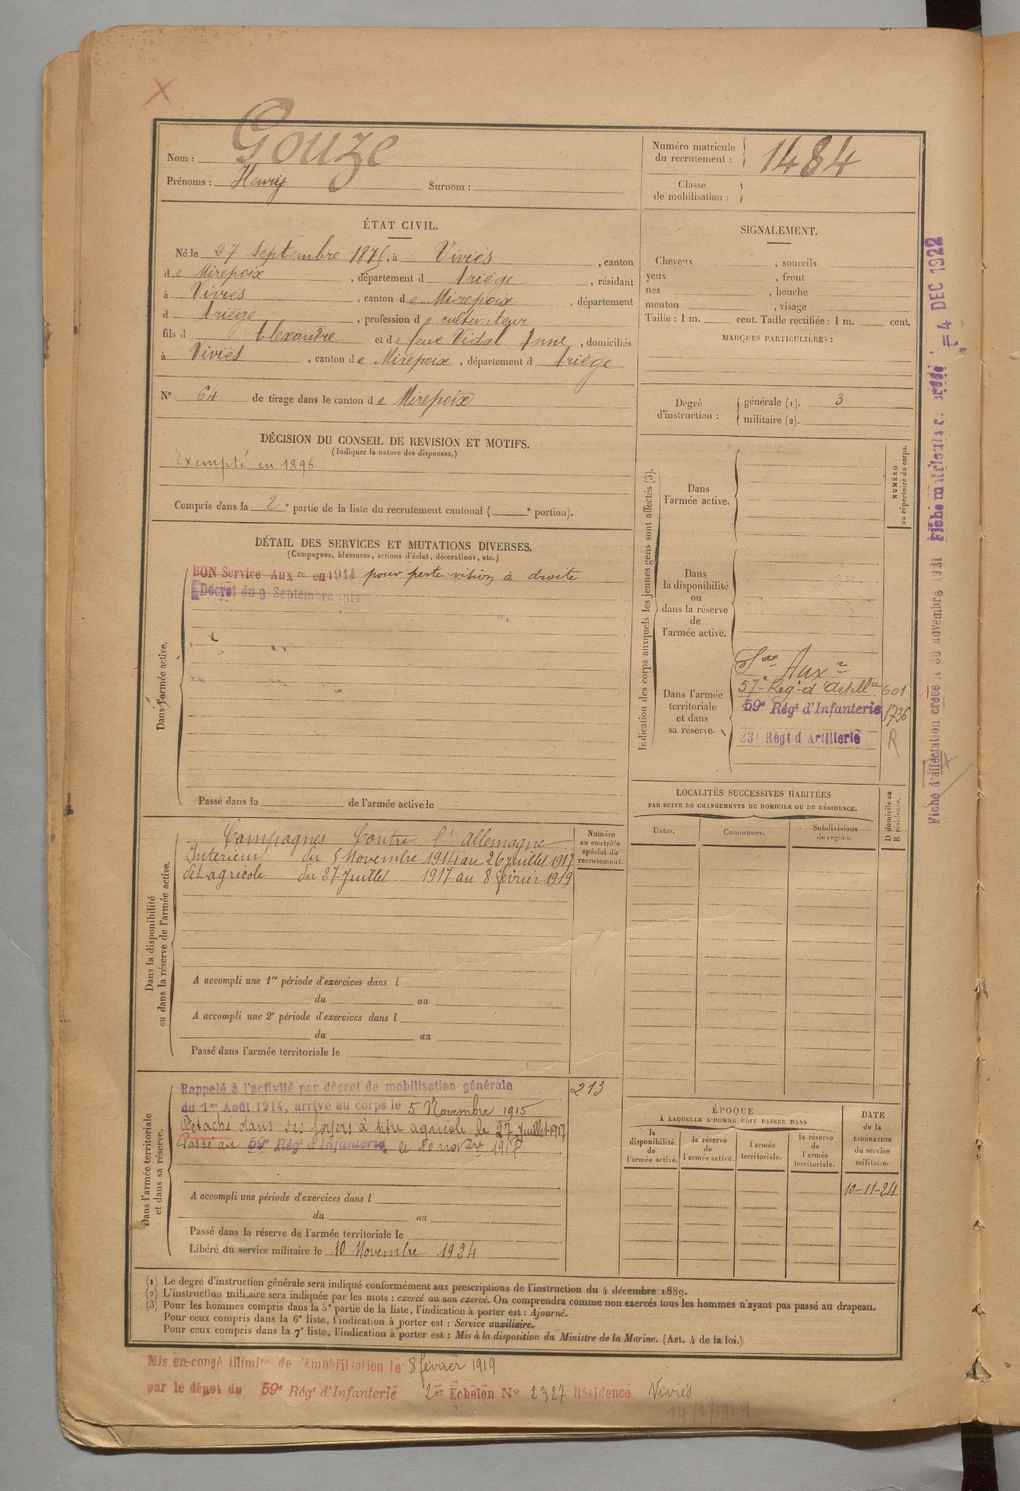 Nom : Gouze
Prénoms : Henry Surnom :
Numéro matricule du recrutement : 1484
Classe de mobilisation :
ÉTAT CIVIL.
Né le 27 Septembre 1875, à Viviès, canton
de Mirepoix, département d Ariège, résidant
à Viviès, canton de Mirepoix, département
d Ariège, profession de cultivateur
fils d Alexandre et de feue Vidal Anne, domiciliés
à Viviès, canton de Mirepoix, département d Ariège
N° 64 de tirage dans le canton de Mirepoix
SIGNALEMENT.
Cheveux , sourcils
yeux , front
nez , bouche
menton , visage
Taille : 1 m. cent. Taille rectifiée : 1 m. cent.
MARQUES PARTICULIÈRES :
Degré d'instruction : générale (1). 3
militaire (2).
DÉCISION DU CONSEIL DE REVISION ET MOTIFS.
(Indiquer la nature des dispenses.)
Exempté en 1896
Compris dans la 2e partie de la liste du recrutement cantonal ( e portion).
DÉTAIL DES SERVICES ET MUTATIONS DIVERSES.
(Campagnes, blessures, actions d'éclat, décorations, etc.)
Dans l'armée active.
BON Service Auxre en 1914 pour perte vision à droite
Décret du 9 Septembre 1914
Passé dans la de l'armée active le
Indication des corps auxquels les jeunes gens sont affectés (3).
NUMÉRO au répertoire du corps.
Dans l'armée active.
Dans la disponibilité ou dans la réserve de l'armée active.
Dans l'armée territoriale et dans sa réserve.
Sce Auxre
57e Régt d'Artillie 601
59e Régt d'Infanterie 1736
23e Régt d'Artillerie R
LOCALITÉS SUCCESSIVES HABITÉES
PAR SUITE DE CHANGEMENTS DE DOMICILE OU DE RÉSIDENCE.
Dates.
Communes.
Subdivisions de région.
D domicile ou R résidence.
Dans la disponibilité ou dans la réserve de l'armée active.
Numéro au contrôle spécial du recrutement.
Campagnes Contre l'Allemagne
Intérieur du 5 Novembre 1914 au 26 juillet 1917
dét agricole du 27 Juillet 1917 au 8 février 1919
A accompli une 1re période d'exercices dans l
du au
A accompli une 2e période d'exercices dans l
du au
Passé dans l'armée territoriale le
Dans l'armée territoriale et dans sa réserve.
Rappelé à l'activité par décret de mobilisation générale 213
du 1er Août 1914, arrivé au corps le 5 Novembre 1915
Détaché dans ses foyers à titre agricole le 27 Juillet 1917
Passé au 59e Régt d'Infanterie, le 20 novbre 1917
A accompli une période d'exercices dans l
du au
Passé dans la réserve de l'armée territoriale le
Libéré du service militaire le 10 Novembre 1924
ÉPOQUE
À LAQUELLE L'HOMME DOIT PASSER DANS
la disponibilité de l'armée active.
la réserve de l'armée active.
l'armée territoriale.
la réserve de l'armée territoriale.
DATE de la LIBÉRATION du service militaire.
10-11-24
(1) Le degré d'instruction générale sera indiqué conformément aux prescriptions de l'instruction du 4 décembre 1889.
(2) L'instruction militaire sera indiquée par les mots : exercé ou non exercé. On comprendra comme non exercés tous les hommes n'ayant pas passé au drapeau.
(3) Pour les hommes compris dans la 5e partie de la liste, l'indication à porter est : Ajourné.
Pour ceux compris dans la 6e liste, l'indication à porter est : Service auxiliaire.
Pour ceux compris dans la 7e liste, l'indication à porter est : Mis à la disposition du Ministre de la Marine. (Art. 4 de la loi.)
Mis en congé illimité de démobilisation le 8 février 1919
par le dépôt du 59e Régt d'Infanterie 2er Échelon N° 2327 Résidence Viviès
14/2/1919
Fiche d'affectation créée le 30 novembre 1921 Fiche matricule
= 4 DEC 1922